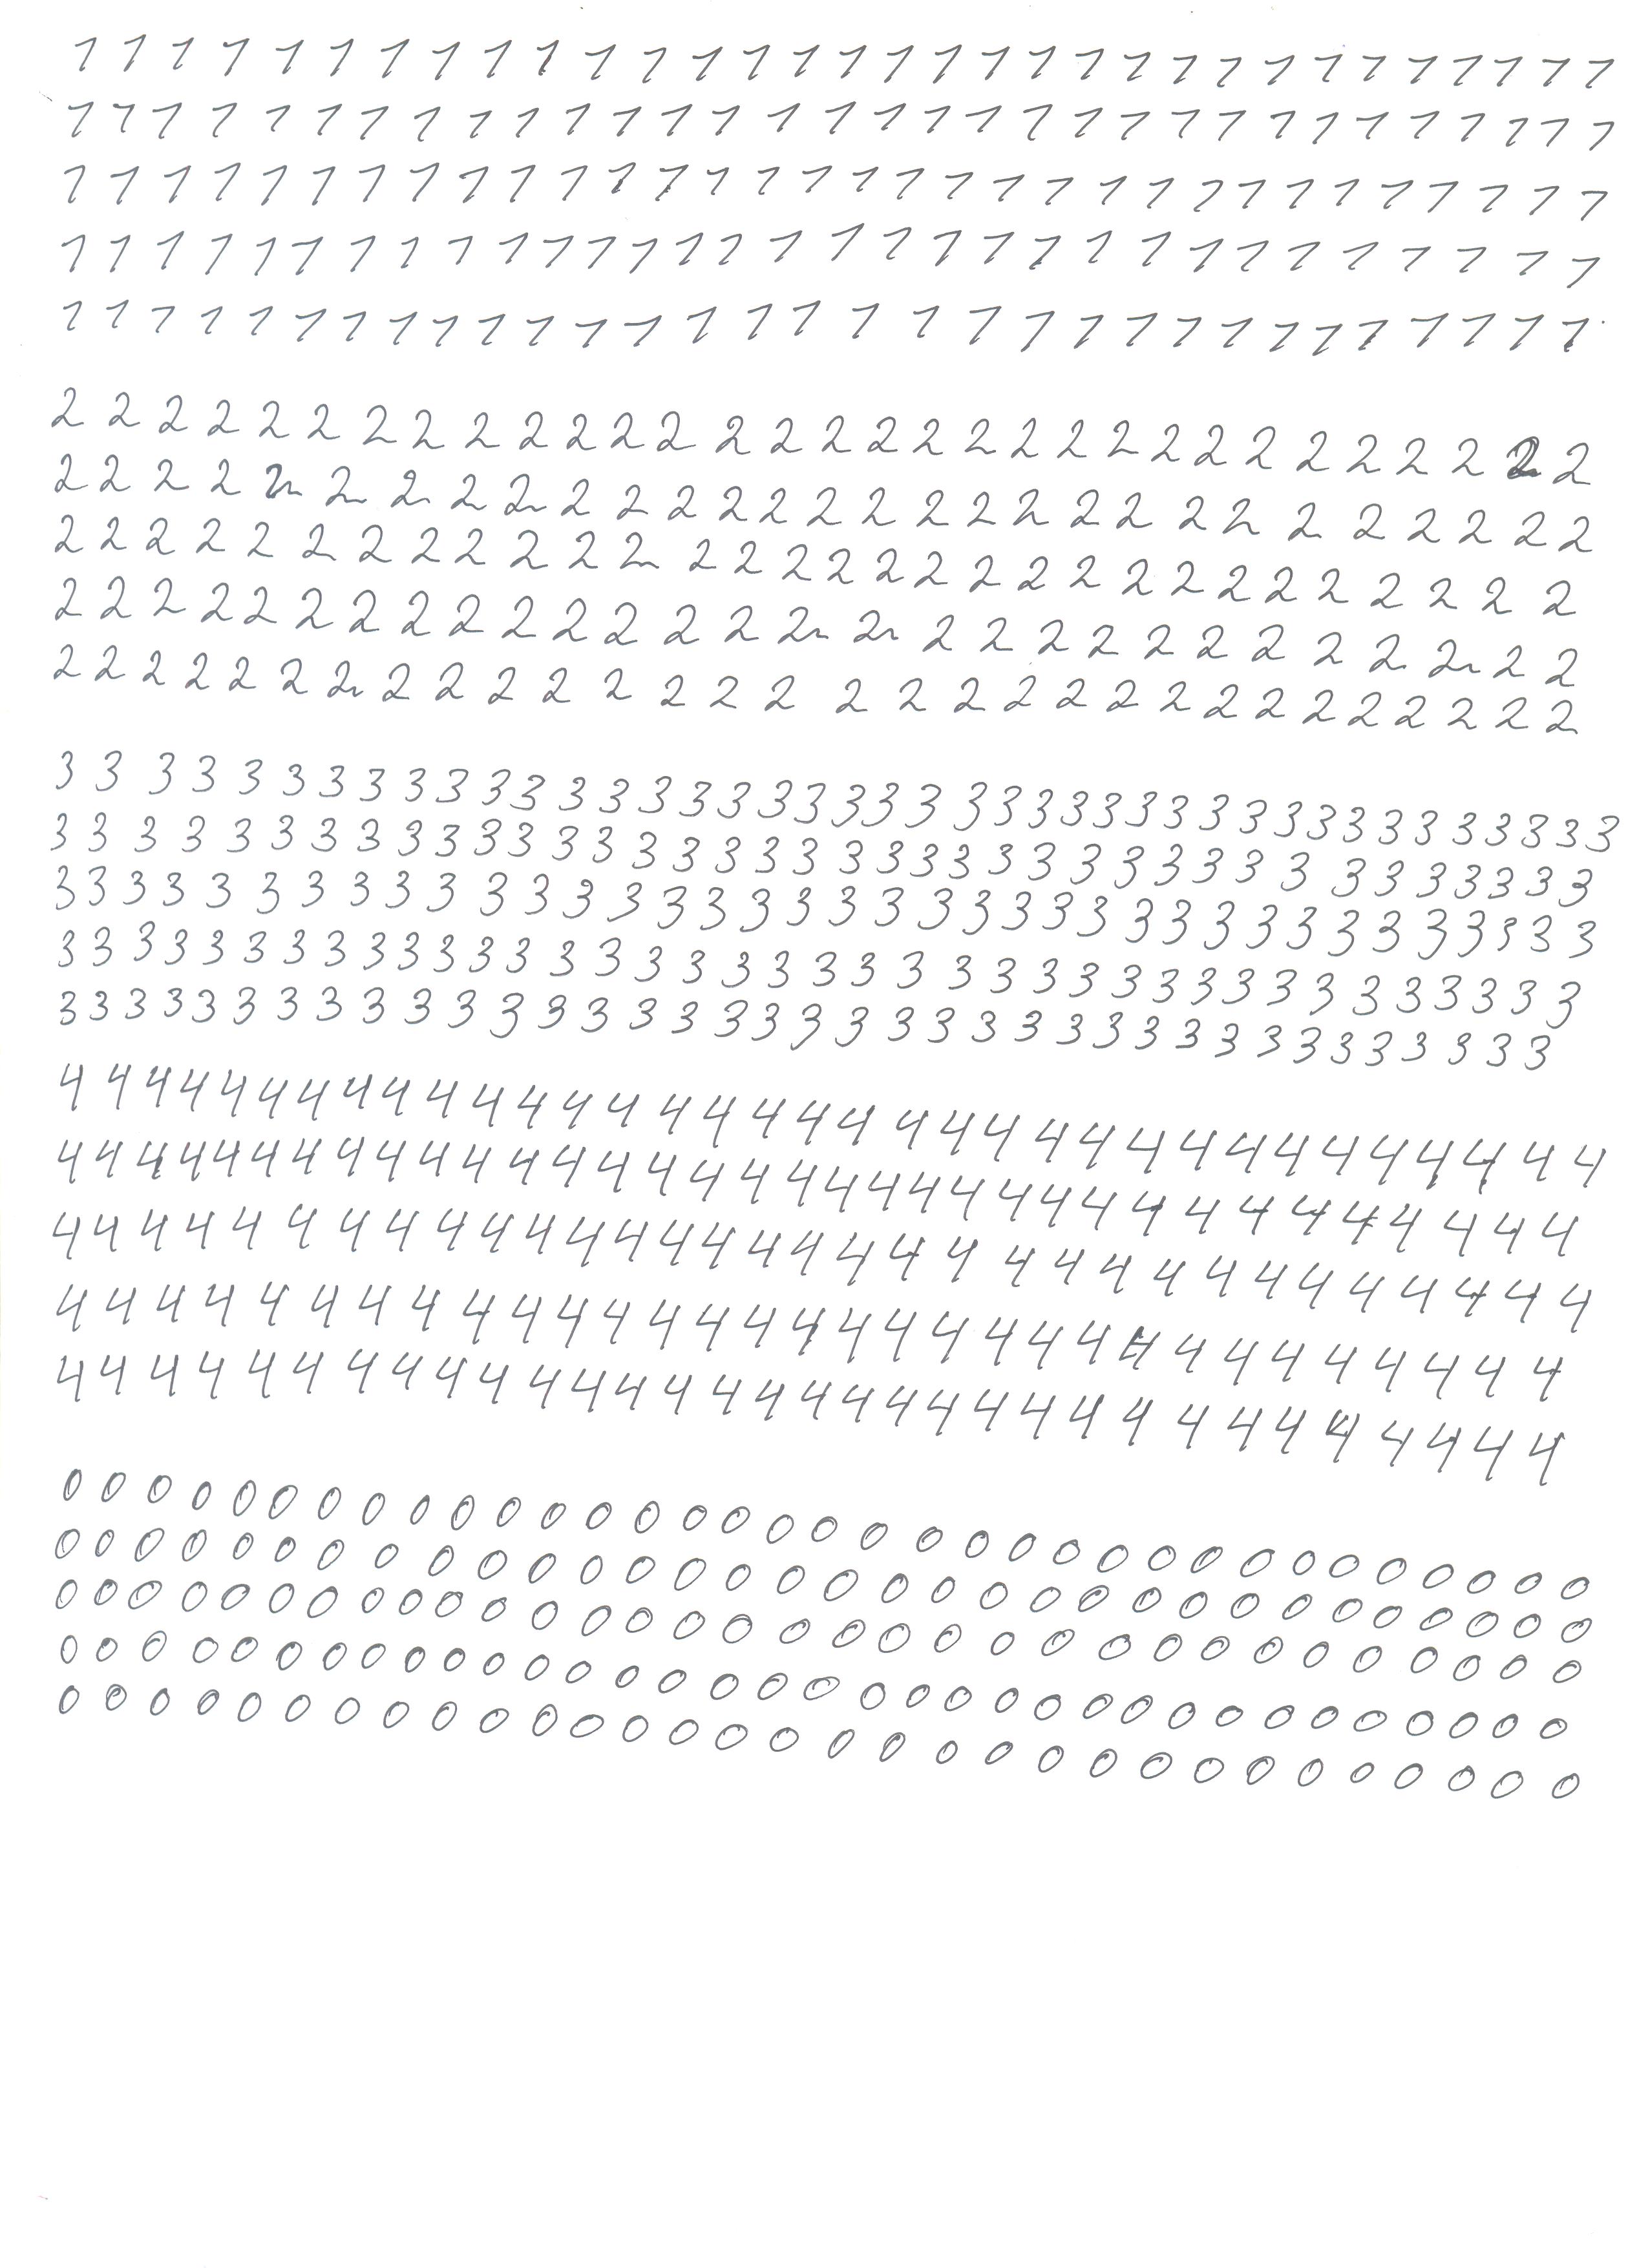 1 1 1 1 1 1 1 1 1 1 1 1 1 1 1 1 1 1 1 1 1 1 1 1 1 1 1 1 1 1 1 1
1 1 1 1 1 1 1 1 1 1 1 1 1 1 1 1 1 1 1 1 1 1 1 1 1 1 1 1 1 1 1 1
1 1 1 1 1 1 1 1 1 1 1 1 1 1 1 1 1 1 1 1 1 1 1 1 1 1 1 1 1 1 1 1
1 1 1 1 1 1 1 1 1 1 1 1 1 1 1 1 1 1 1 1 1 1 1 1 1 1 1 1 1 1 1
1 1 1 1 1 1 1 1 1 1 1 1 1 1 1 1 1 1 1 1 1 1 1 1 1 1 1 1 1 1 1
2 2 2 2 2 2 2 2 2 2 2 2 2 2 2 2 2 2 2 2 2 2 2 2 2 2 2 2 2 2 2
2 2 2 2 2 2 2 2 2 2 2 2 2 2 2 2 2 2 2 2 2 2 2 2 2 2 2 2 2
2 2 2 2 2 2 2 2 2 2 2 2 2 2 2 2 2 2 2 2 2 2 2 2 2 2 2 2 2 2
2 2 2 2 2 2 2 2 2 2 2 2 2 2 2 2 2 2 2 2 2 2 2 2 2 2 2 2
2 2 2 2 2 2 2 2 2 2 2 2 2 2 2 2 2 2 2 2 2 2 2 2 2 2 2 2 2 2
3 3 3 3 3 3 3 3 3 3 3 3 3 3 3 3 3 3 3 3 3 3 3 3 3 3 3 3 3 3 3 3 3 3 3 3 3 3 3 3 3
3 3 3 3 3 3 3 3 3 3 3 3 3 3 3 3 3 3 3 3 3 3 3 3 3 3 3 3 3 3 3 3 3 3 3 3 3 3
3 3 3 3 3 3 3 3 3 3 3 3 3 3 3 3 3 3 3 3 3 3 3 3 3 3 3 3 3 3 3 3 3 3 3 3 3
3 3 3 3 3 3 3 3 3 3 3 3 3 3 3 3 3 3 3 3 3 3 3 3 3 3 3 3 3 3 3 3 3 3 3 3 3 3
3 3 3 3 3 3 3 3 3 3 3 3 3 3 3 3 3 3 3 3 3 3 3 3 3 3 3 3 3 3 3 3 3 3 3 3 3
4 4 4 4 4 4 4 4 4 4 4 4 4 4 4 4 4 4 4 4 4 4 4 4 4 4 4 4 4 4 4 4 4 4
4 4 4 4 4 4 4 4 4 4 4 4 4 4 4 4 4 4 4 4 4 4 4 4 4 4 4 4 4 4 4 4 4 4
4 4 4 4 4 4 4 4 4 4 4 4 4 4 4 4 4 4 4 4 4 4 4 4 4 4 4 4 4 4 4 4
4 4 4 4 4 4 4 4 4 4 4 4 4 4 4 4 4 4 4 4 4 4 4 4 4 4 4 4 4 4 4
4 4 4 4 4 4 4 4 4 4 4 4 4 4 4 4 4 4 4 4 4 4 4 4 4 4 4 4 4 4 4 4
0 0 0 0 0 0 0 0 0 0 0 0 0 0 0 0 0 0 0 0 0 0 0 0 0 0 0 0 0 0 0 0 0 0
0 0 0 0 0 0 0 0 0 0 0 0 0 0 0 0 0 0 0 0 0 0 0 0 0 0 0 0 0 0 0 0
0 0 0 0 0 0 0 0 0 0 0 0 0 0 0 0 0 0 0 0 0 0 0 0 0 0 0 0 0 0 0 0
0 0 0 0 0 0 0 0 0 0 0 0 0 0 0 0 0 0 0 0 0 0 0 0 0 0 0 0 0 0 0 0 0 0
0 0 0 0 0 0 0 0 0 0 0 0 0 0 0 0 0 0 0 0 0 0 0 0 0 0 0 0 0 0 0